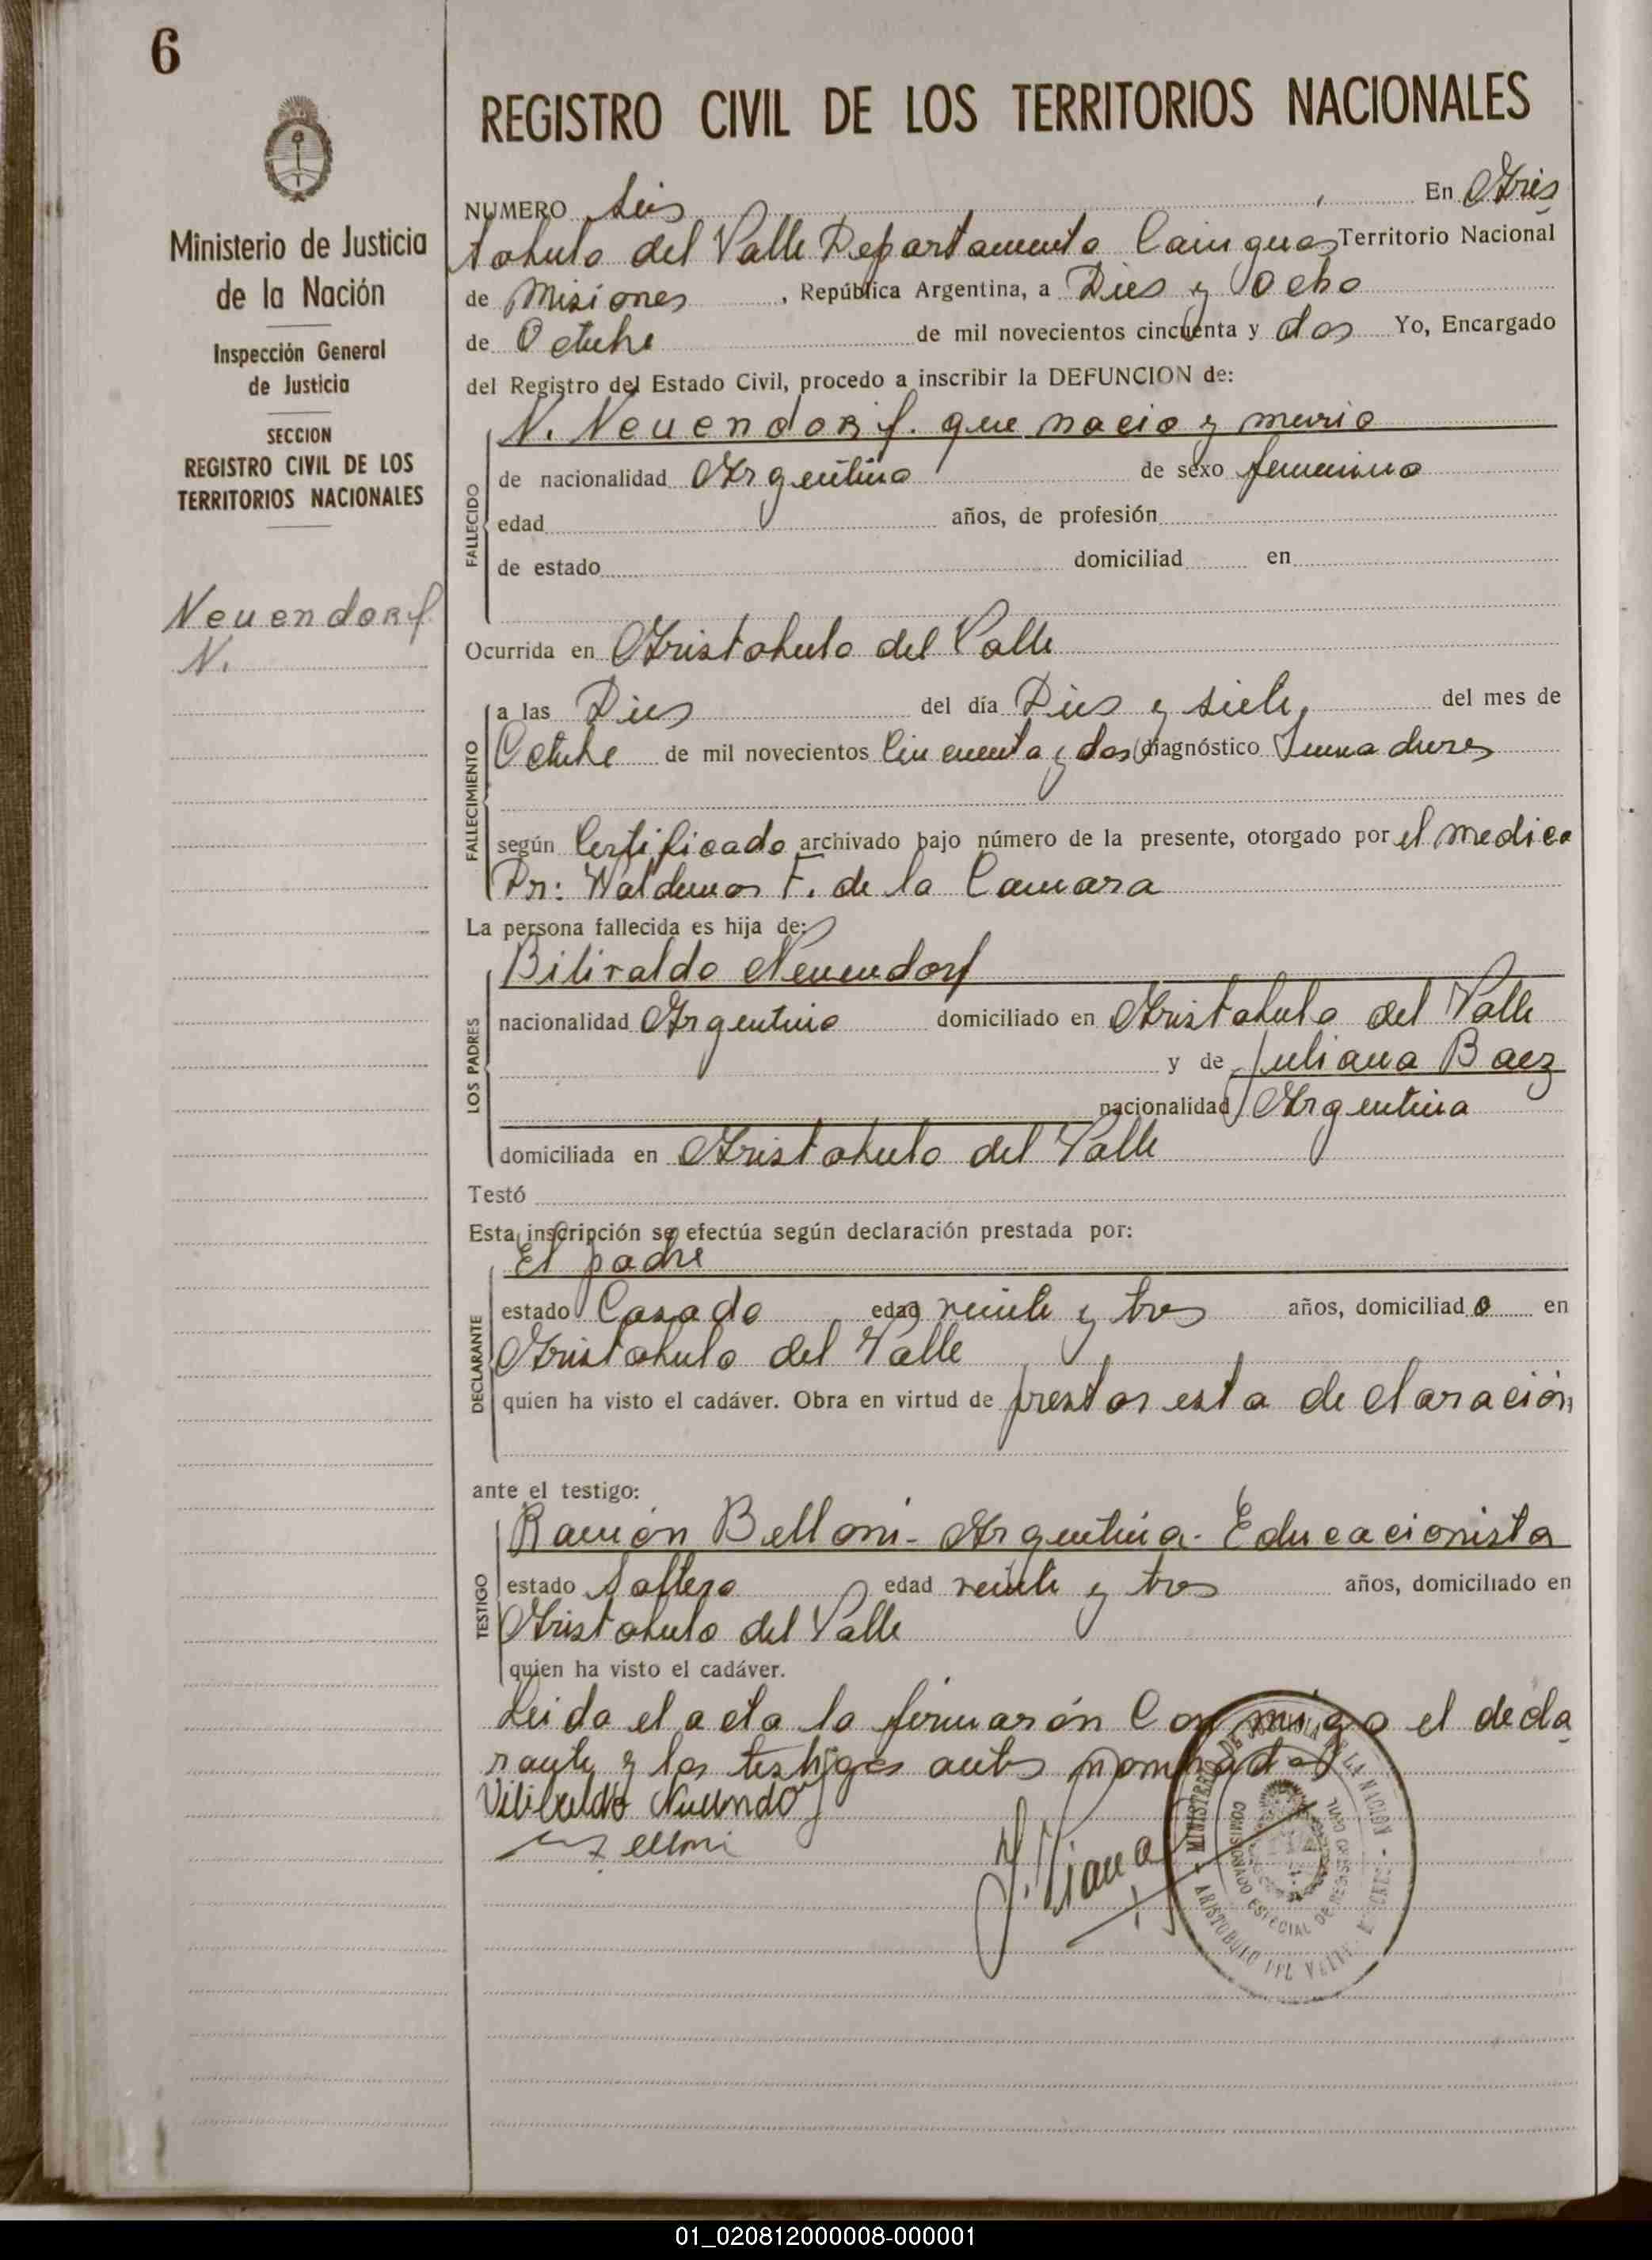 6
REGISTRO CIVIL DE LOS TERRITORIOS NACIONALES
Ministerio de Justicia
de la Nación
Inspección General
de Justicia
SECCION
REGISTRO CIVIL DE LOS
TERRITORIOS NACIONALES
Neuendorf
N.
NUMERO Seis, En Aris
tobulo del Valle Departamento Cainguas Territorio Nacional
de Misiones, República Argentina, a Dies y Ocho
de Octubre de mil novecientos cincuenta y dos Yo, Encargado
del Registro del Estado Civil, procedo a inscribir la DEFUNCION de:
N. Neuendorf. que nacio y murio
FALLECIDO
de nacionalidad Argentina de sexo femenino
edad años, de profesión
de estado domiciliad en
Ocurrida en Aristobulo del Valle
FALLECIMIENTO
a las Dies del día Dies y siete, del mes de
Octubre de mil novecientos Cincuenta y dos diagnóstico
según Certificado archivado bajo número de la presente, otorgado por el medico
Dr: Waldemar F. de la Camara
La persona fallecida es hija de:
LOS PADRES
Biliraldo Neuendorf
nacionalidad Argentino domiciliado en Aristobulo del Valle
y de Juliana Baez
nacionalidad Argentina
domiciliada en Aristobulo del Valle
Testó
Esta inscripción se efectúa según declaración prestada por:
DECLARANTE
El padre
estado Casado edad veinte y tres años, domiciliado en
Aristobulo del Valle
quien ha visto el cadáver. Obra en virtud de prestar esta declaración
ante el testigo:
TESTIGO
Ramón Belloni - Argentina - Educacionista
estado Soltero edad veinte y tres años, domiciliado en
Aristobulo del Valle
quien ha visto el cadáver.
Leida el acta la firmarón Conmigo el decla
rante y los testigos antes nombrados
J. Viana
MINISTERIO DE JUSTICIA DE LA NACION
COMISIONADO ESPECIAL DE REGISTRO CIVIL
ARISTOBULO DEL VALLE - MISIONES
01_020812000008-000001